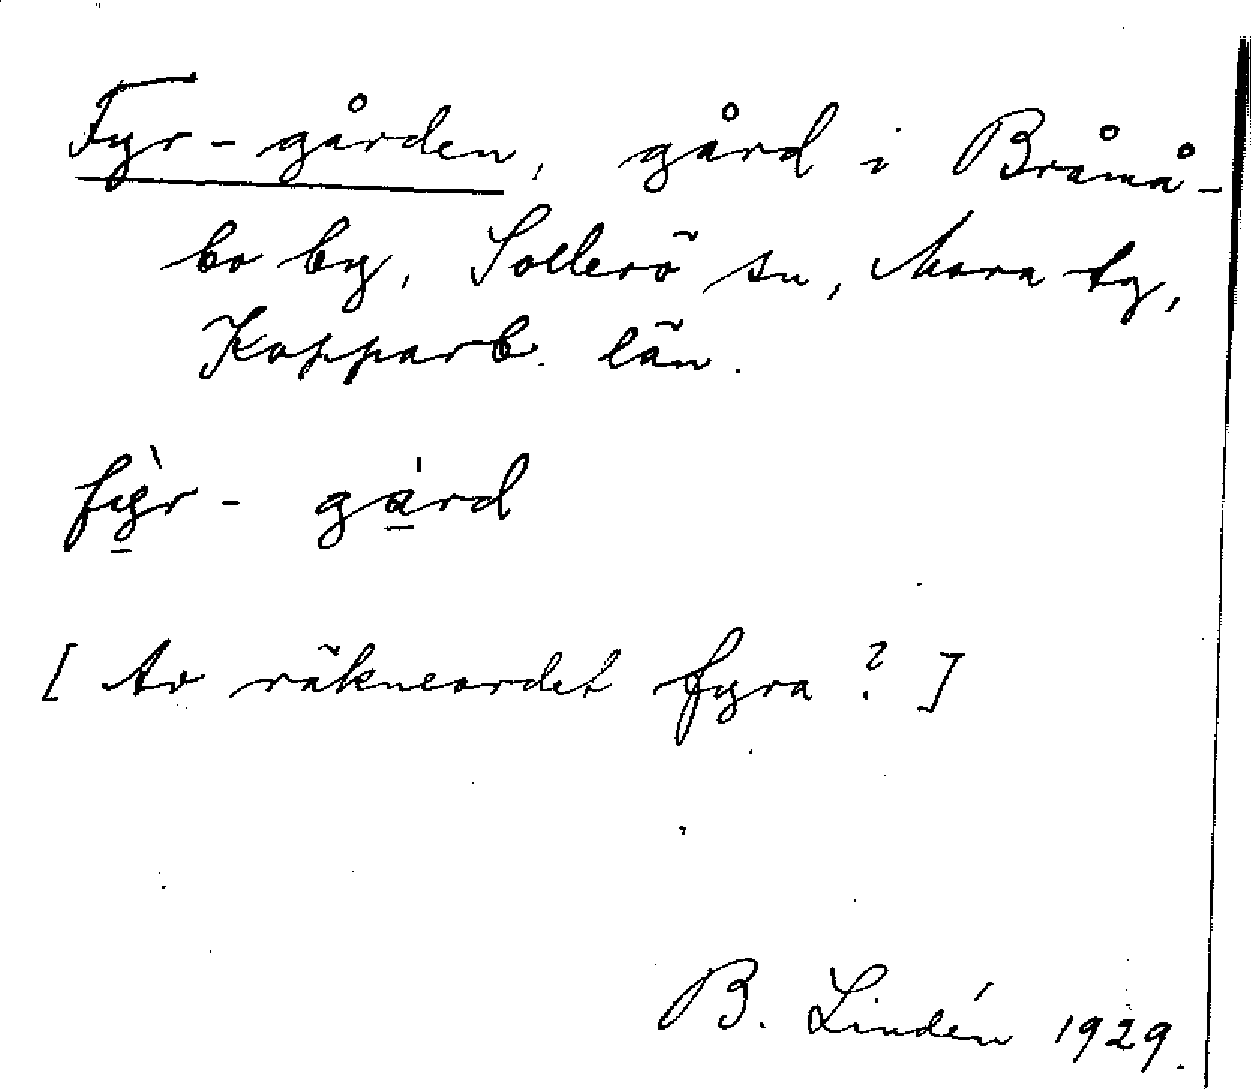 Fyr-gården, gård i Bråmå-
bo by, Sollerö sn, Mora tg,
Kopparb. län.
fỳ̠r- ga̠̍rd
[Av räkneordet fyra?]
B. Lindén 1929.